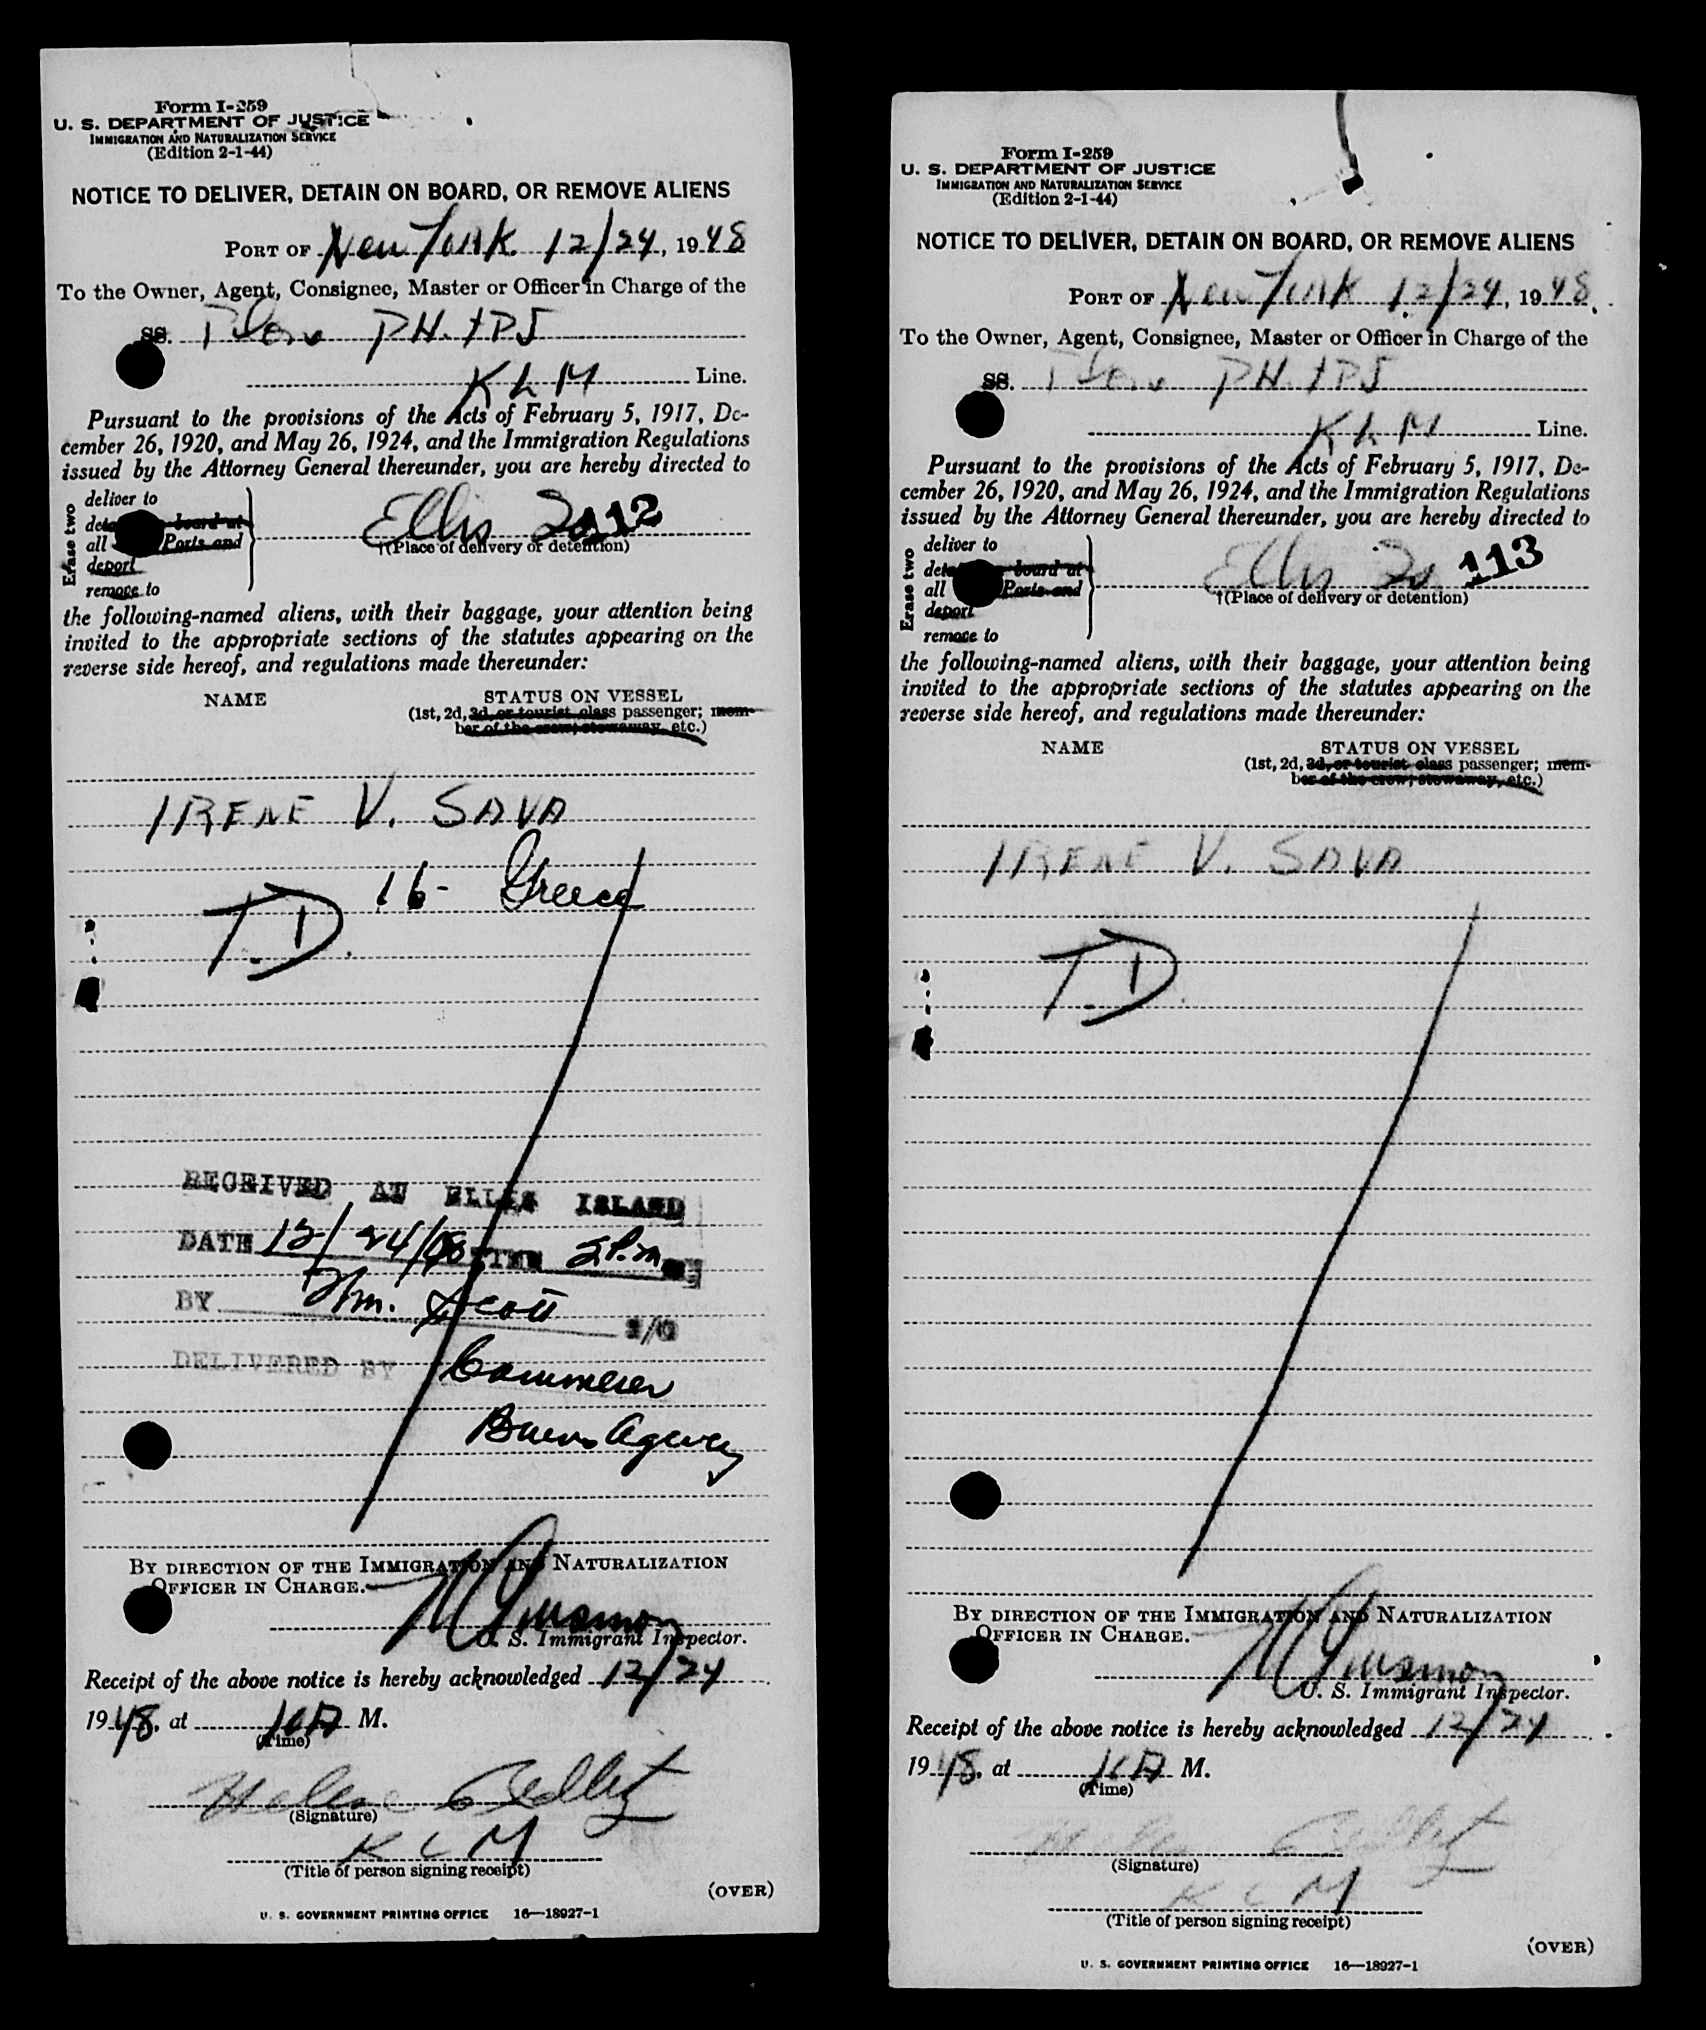 Form I-259
U. S. DEPARTMENT OF JUSTICE
IMMIGRATION AND NATURALIZATION SERVICE
(Edition 2-1-44)
NOTICE TO DELIVER, DETAIN ON BOARD, OR REMOVE ALIENS
PORT OF New York 12/24, 1948
To the Owner, Agent, Consignee, Master or Officer in Charge of the
SS. Plane PH. TPJ
KLM Line.
Pursuant to the provisions of the Acts of February 5, 1917, De-
cember 26, 1920, and May 26, 1924, and the Immigration Regulations
issued by the Attorney General thereunder, you are hereby directed to
Erase two
deliver to
board at
all Ports and
deport
remove to
Ellis Is 112
†(Place of delivery or detention)
the following-named aliens, with their baggage, your attention being
invited to the appropriate sections of the statutes appearing on the
reverse side hereof, and regulations made thereunder:
NAME STATUS ON VESSEL
(1st, 2d, 3d, or tourist class passenger; mem-
ber of the crew; stowaway, etc.)
IRENE V. SAVA
16- Greece
T.D.
RECEIVED AT ELLIS ISLAND
DATE 12/24/48 2 P.m
BY Wm. Scott
DELIVERED BY
Agency
BY DIRECTION OF THE IMMIGRATION AND NATURALIZATION
OFFICER IN CHARGE.
U. S. Immigrant Inspector.
Receipt of the above notice is hereby acknowledged 12/24
1948, at 10 A M.
(Time)
Helene
(Signature)
KLM
(Title of person signing receipt)
(OVER)
U. S. GOVERNMENT PRINTING OFFICE 16—18927-1
Form I-259
U. S. DEPARTMENT OF JUSTICE
IMMIGRATION AND NATURALIZATION SERVICE
(Edition 2-1-44)
NOTICE TO DELIVER, DETAIN ON BOARD, OR REMOVE ALIENS
PORT OF New York 12/24, 1948
To the Owner, Agent, Consignee, Master or Officer in Charge of the
SS. Plane PH. TPJ
KLM Line.
Pursuant to the provisions of the Acts of February 5, 1917, De-
cember 26, 1920, and May 26, 1924, and the Immigration Regulations
issued by the Attorney General thereunder, you are hereby directed to
Erase two
deliver to
board at
all Ports and
deport
remove to
Ellis Is 113
†(Place of delivery or detention)
the following-named aliens, with their baggage, your attention being
invited to the appropriate sections of the statutes appearing on the
reverse side hereof, and regulations made thereunder:
NAME STATUS ON VESSEL
(1st, 2d, 3d, or tourist class passenger; mem-
ber of the crew; stowaway, etc.)
IRENE V. SAVA
T.D.
BY DIRECTION OF THE IMMIGRATION AND NATURALIZATION
OFFICER IN CHARGE.
U. S. Immigrant Inspector.
Receipt of the above notice is hereby acknowledged 12/24
1948, at 10 A M.
(Time)
(Signature)
KLM
(Title of person signing receipt)
(OVER)
U. S. GOVERNMENT PRINTING OFFICE 16—18927-1